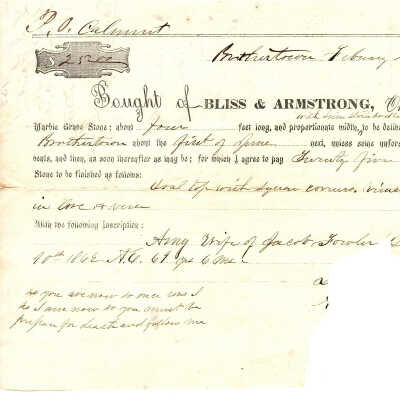 P.O. Calumet
$ 25.00
Brothertown Febuary
Bought of BLISS & ARMSTRONG,
Marble Grave Stone; about four feet long, and proportionate width, to be deliv
Brothertown about the first of June next, unless some unfors
ents, and then, as soon thereafter as may be; for which I agree to pay Twenty five
Stone to be finished as follows:
Oval top with
in
With the following Inscription:
Amy Wife of Jacob Fowler
10th 1862 AE. 61 yrs 6 ms.
As you are now so once was I
As I am now so you must be
Prepare for death and follow me